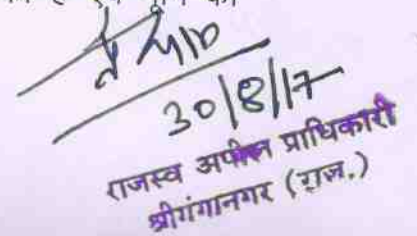 30/8/17
राजस्व अपील प्राधिकारी
श्रीगंगानगर (राज.)